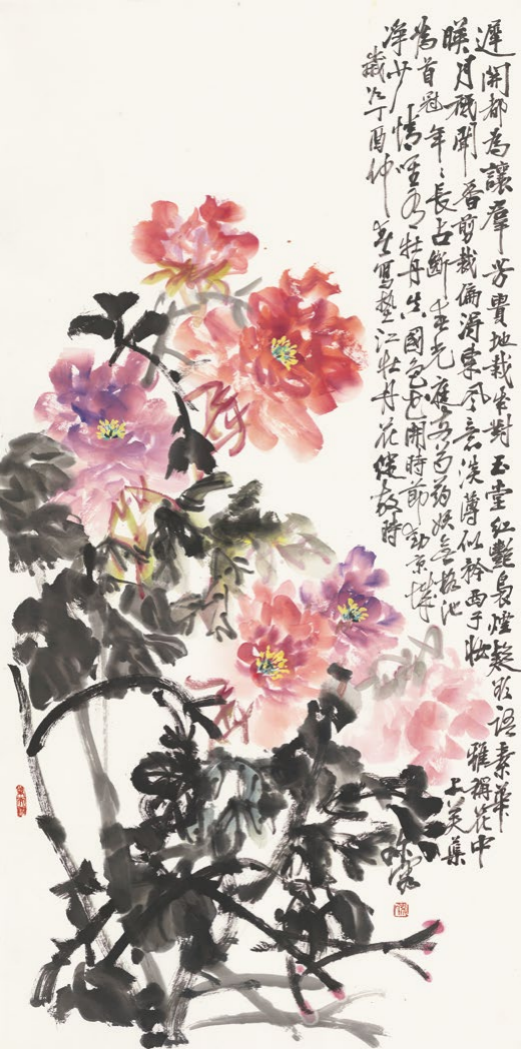 遲開都為讓群芳貴地栽成對玉堂紅艷裊煙疑欲語素華
映月祗聞香剪裁偏得東風意淡薄似矜西子妝雅稱花中
為首冠年〻長占斷春光庭前芍藥妖無格池上芙蕖
淨少情唯有牡丹真國色花開時節動京城
歲次丁酉仲春寫墊江牡丹花盛放時